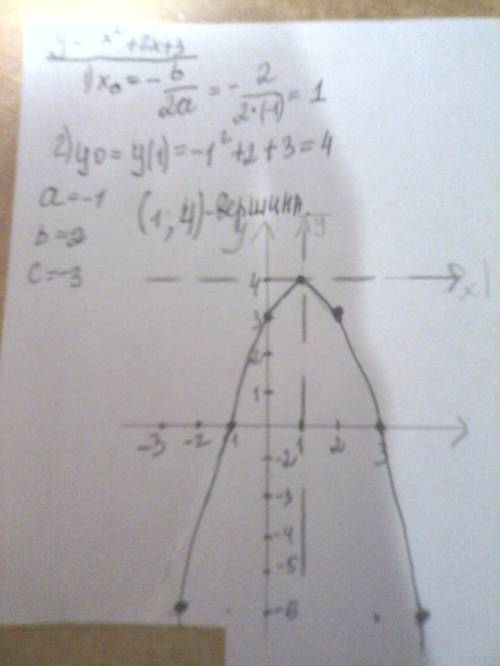 y = -x² + 2x + 3
1) x₀ = -b/2a = -2/2·(-1) = 1
2) y₀ = y(1) = -1² + 2 + 3 = 4
a = -1
(1; 4) - вершина.
b = 2
c = -3
y y
4 x
3
2
1
-3 -2 -1 1 2 3
-2
-3
-4
-5
-6